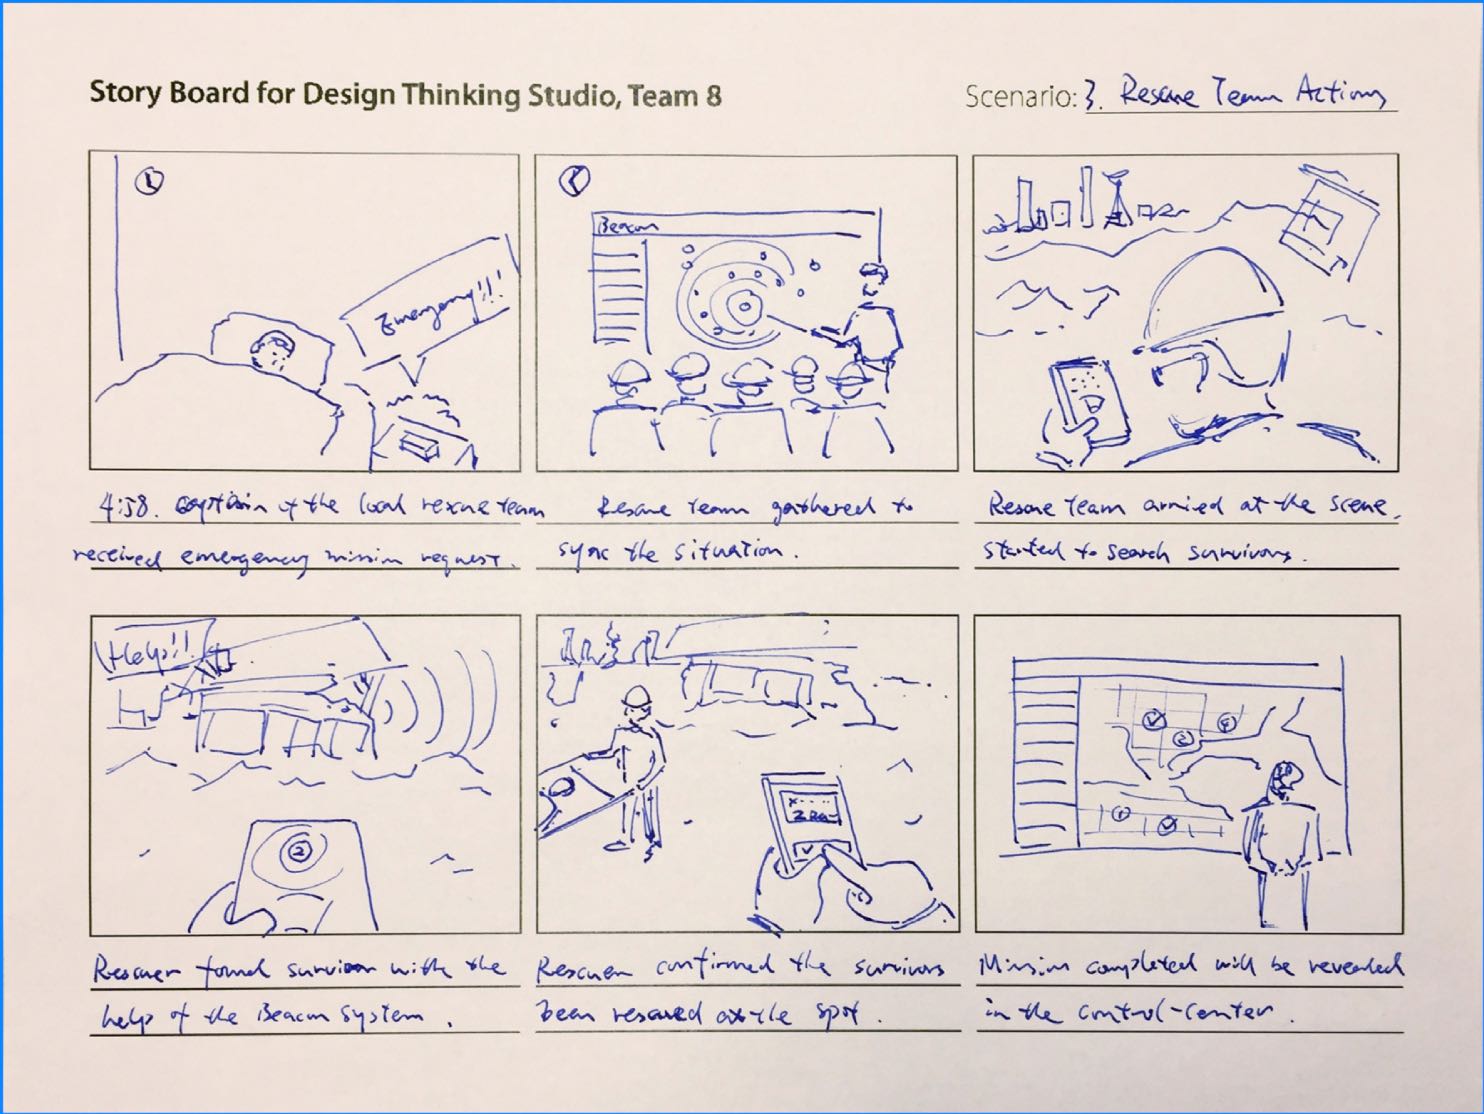 Story Board for Design Thinking Studio, Team 8
Scenario: 3. Rescue Team Actions
1
Emergency!!!
Beacon
4:58. captain of the local rescue team
received emergency mission request.
Rescue team gathered to
sync the situation.
Rescue team arrived at the scene.
started to search survivors.
Help!!
2
2
4
1
Rescuer found survivor with the
help of the Beacon System.
Rescuer confirmed the survivors
been rescued at the spot.
Mission completed will be revealed
in the control-center.